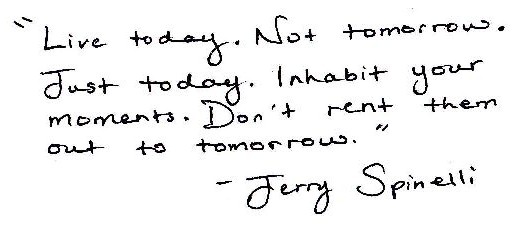 "Live today. Not tomorrow.
Just today. Inhabit your
moments. Don't rent them
out to tomorrow."
- Jerry Spinelli